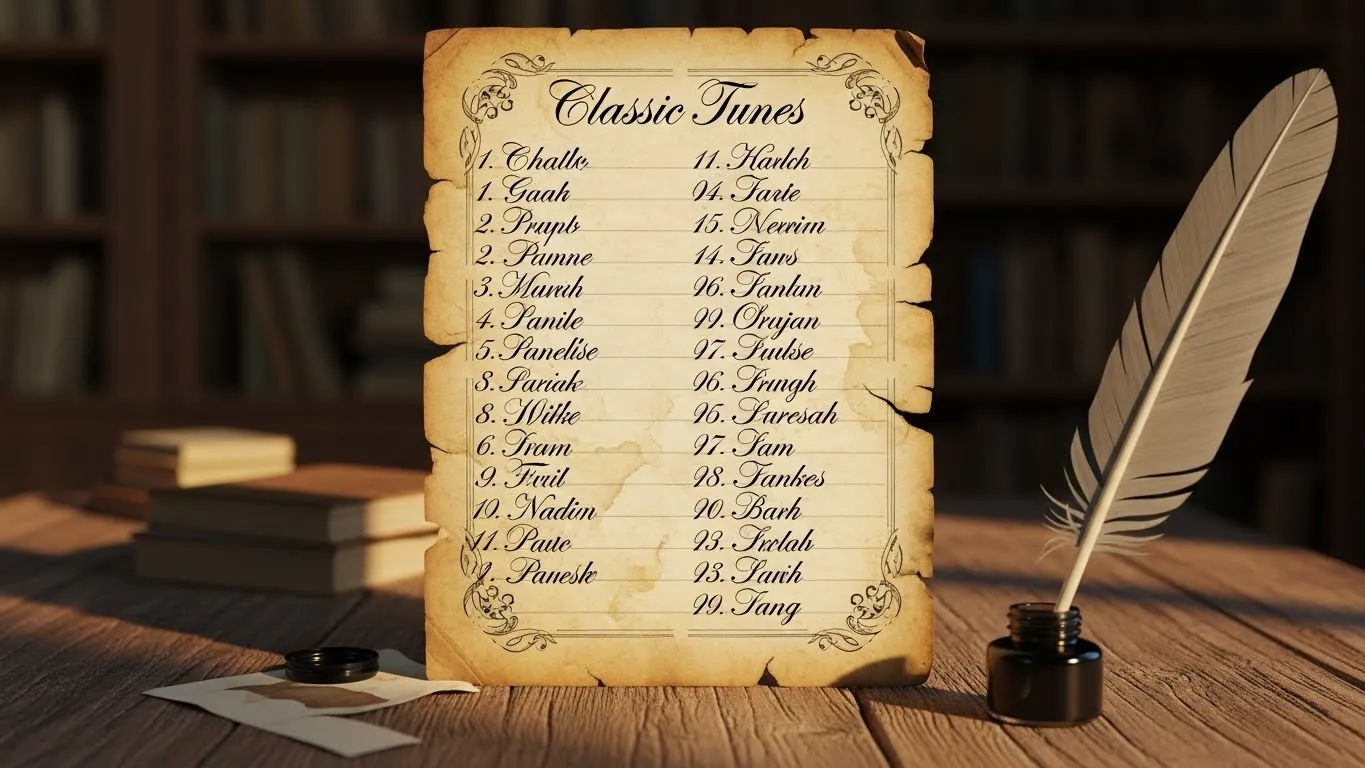 Classic Tunes
1. Chatle
1. Gaah
2. Prupb
2. Pamne
3. Murah
4. Panile
5. Sanelise
8. Pariak
8. Wilke
6. Fram
9. Fruil
10. Nadin
11. Paue
Pauesk
11. Harlch
94. Farie
15. Nerrim
14. Faws
96. Fanlun
99. Orujan
97. Fulse
96. Frungh
96. Suresah
97. Fam
98. Fankes
90. Barh
93. Frelah
93. Sarih
99. Fang